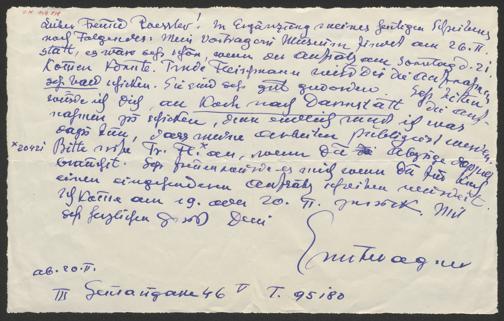 Lieber Freund Roessler! In Ergänzung meines heutigen Schreibens
noch Folgendes: Mein Vortrag im Museum findet am 26. II.
statt, es wäre sehr schön, wenn der Aufsatz am Sonntag d. 21
kommen könnte. Trude Fleischmann wird Dir die Aufnahmen
sehr bald schicken. Sie sind sehr gut geworden. Sehr bitten
würde ich Dich, an Koch nach Darmstadt die Auf-
nahmen zu schicken, denn endlich muss ich was
dazu tun, dass meine Arbeiten publiziert werden.
*20421 Bitte rufe Fr. Fl.* an, wenn Du Abzüge doppelt
brauchst. Sehr freuen würde es mich wenn Du für Koch
einen eingehenden Aufsatz schreiben würdest.
Ich komme am 19. oder 20. II. zurück. Mit
sehr herzlichen Dein
ab. 20. II.
III 46 T. 95180